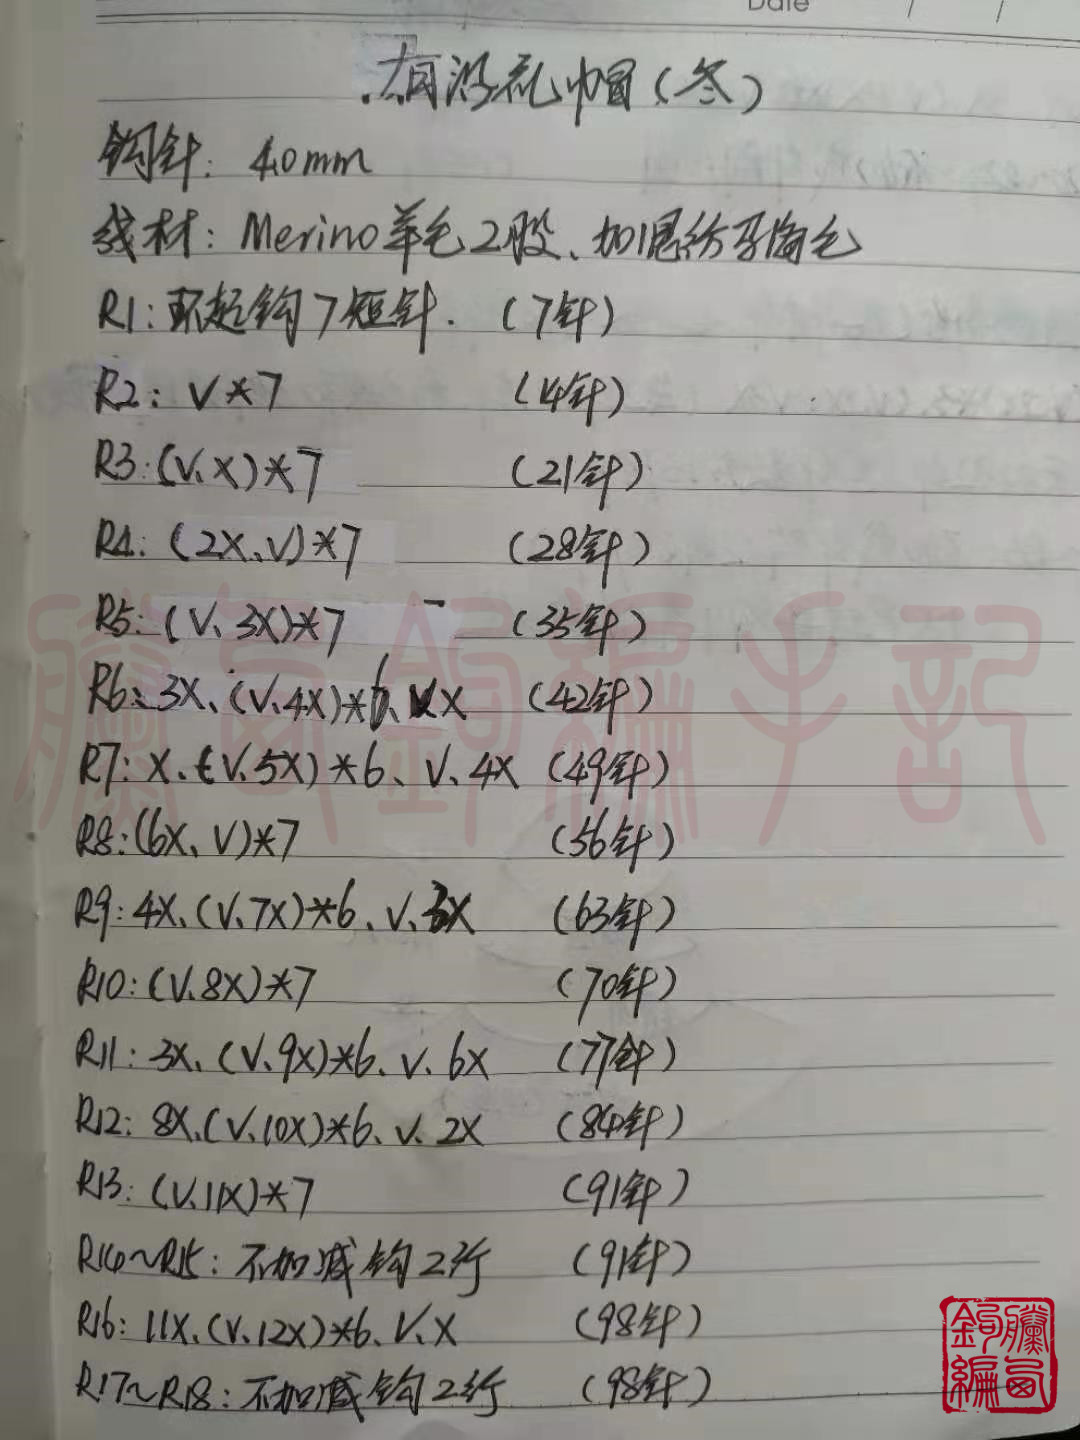 Date / /
帽(冬)
钩针: 4.0mm
线材: Merino羊毛2股、加1马海毛
R1: 环起钩7短针. (7针)
R2: V*7 (14针)
R3: (V、X)*7 (21针)
R4: (2X、V)*7 (28针)
R5: (V、3X)*7 (35针)
R6: 3X、(V、4X)*6、V、X (42针)
R7: X、(V、5X)*6、V、4X (49针)
R8: (6X、V)*7 (56针)
R9: 4X、(V、7X)*6、V、3X (63针)
R10: (V、8X)*7 (70针)
R11: 3X、(V、9X)*6、V、6X (77针)
R12: 8X、(V、10X)*6、V、2X (84针)
R13: (V、11X)*7 (91针)
R14~R15: 不加减钩2行 (91针)
R16: 11X、(V、12X)*6、V、X (98针)
R17~R18: 不加减钩2行 (98针)
钩编手记